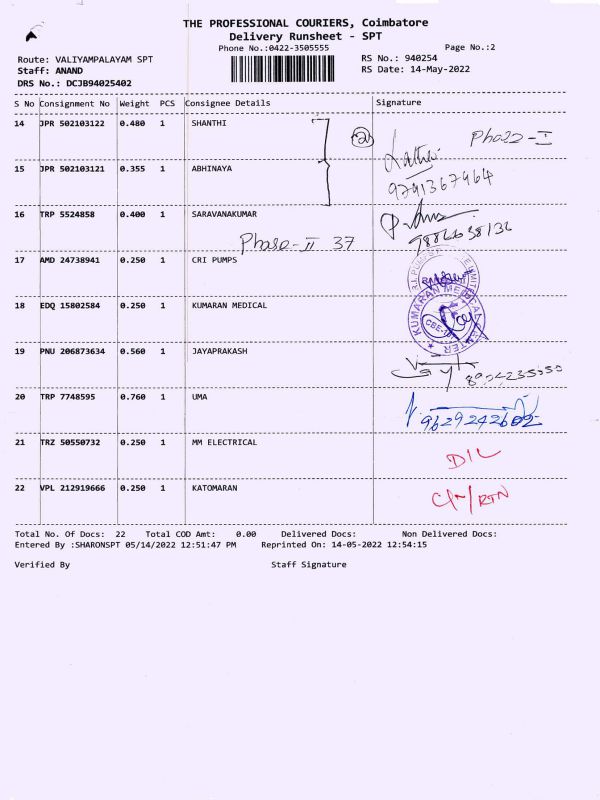 THE PROFESSIONAL COURIERS, Coimbatore
Delivery Runsheet - SPT
Phone No.:0422-3505555 Page No.:2
Route: VALIYAMPALAYAM SPT RS No.: 940254
Staff: ANAND RS Date: 14-May-2022
DRS No.: DCJB94025402
S No Consignment No Weight PCS Consignee Details Signature
14 JPR 502103122 0.480 1 SHANTHI
Phase-I
15 JPR 502103121 0.355 1 ABHINAYA
9791367964
16 TRP 5524858 0.400 1 SARAVANAKUMAR
Phase-II 37
17 AMD 24738941 0.250 1 CRI PUMPS
18 EDQ 15802584 0.250 1 KUMARAN MEDICAL
KUMARAN MEDICAL CENTER
19 PNU 206873634 0.560 1 JAYAPRAKASH
20 TRP 7748595 0.760 1 UMA
9629242602
21 TRZ 50550732 0.250 1 MM ELECTRICAL
D/L
22 VPL 212919666 0.250 1 KATOMARAN
RTN
Total No. Of Docs: 22 Total COD Amt: 0.00 Delivered Docs: Non Delivered Docs:
Entered By :SHARONSPT 05/14/2022 12:51:47 PM Reprinted On: 14-05-2022 12:54:15
Verified By Staff Signature